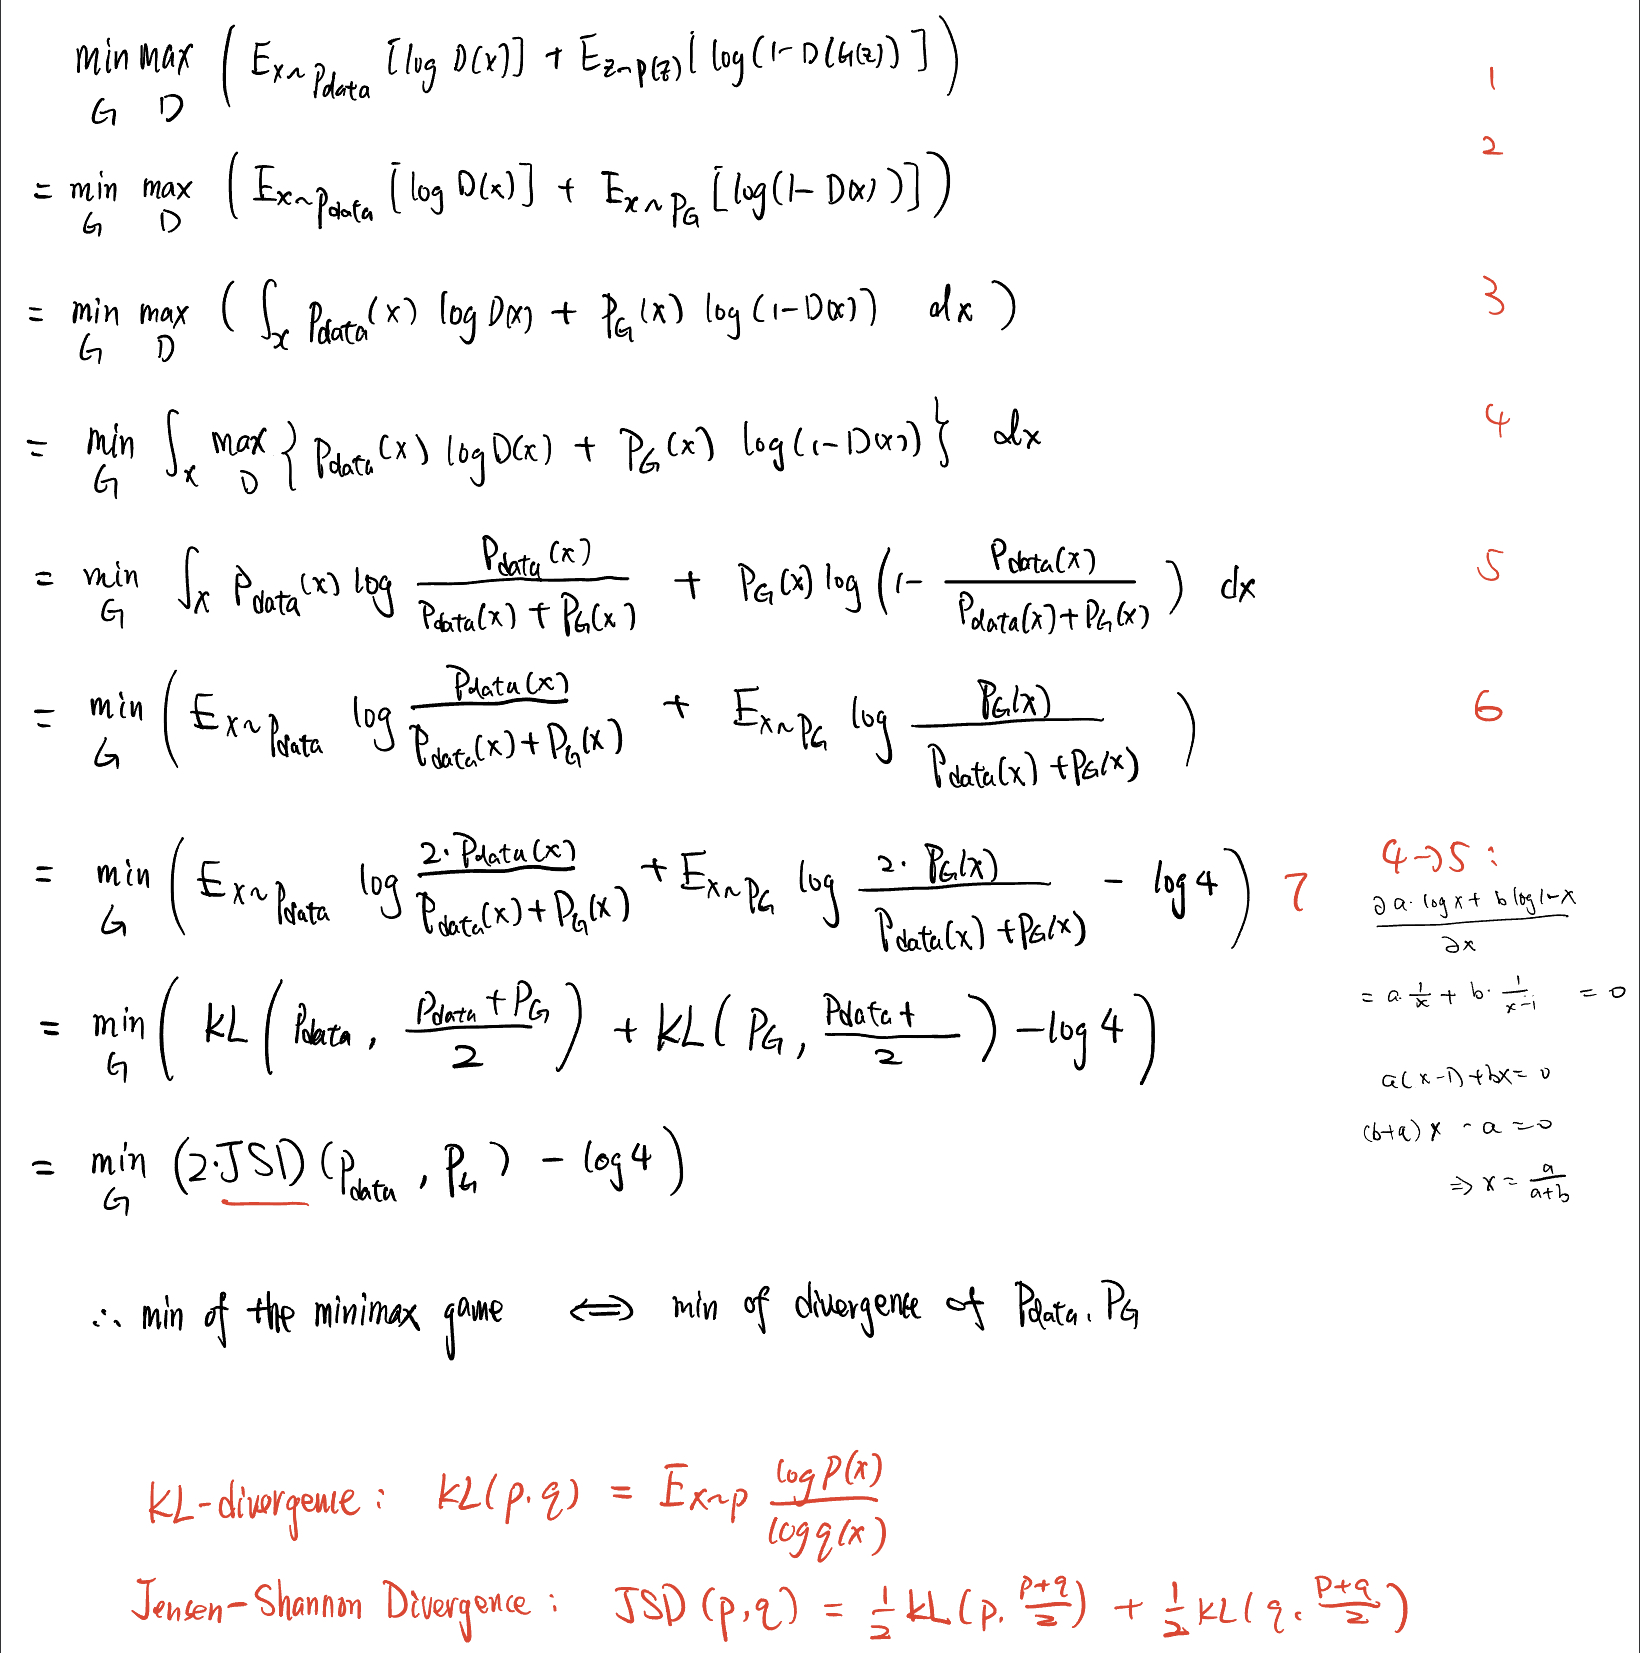 min max ( E_{x~Pdata} [log D(x)] + E_{z~p(z)} [ log(1- D(G(z)) ] ) 1
G D
2
= min max ( E_{x~Pdata} [log D(x)] + E_{x~PG} [log(1- D(x) )] )
G D
= min max ( ∫_x Pdata(x) log D(x) + PG(x) log(1-D(x)) dx ) 3
G D
= min ∫_x max { Pdata(x) log D(x) + PG(x) log(1-D(x)) } dx 4
G D
= min ∫_x Pdata(x) log \frac{Pdata(x)}{Pdata(x) + PG(x)} + PG(x) log ( 1- \frac{Pdata(x)}{Pdata(x)+PG(x)} ) dx 5
G
= min ( E_{x~Pdata} log \frac{Pdata(x)}{Pdata(x)+PG(x)} + E_{x~PG} log \frac{PG(x)}{Pdata(x)+PG(x)} ) 6
G
= min ( E_{x~Pdata} log \frac{2·Pdata(x)}{Pdata(x)+PG(x)} + E_{x~PG} log \frac{2·PG(x)}{Pdata(x)+PG(x)} - log 4 ) 7
G
= min ( KL ( Pdata, \frac{Pdata+PG}{2} ) + KL( PG, \frac{Pdata+}{2} ) - log 4 )
G
= min (2·JSD (Pdata, PG) - log 4 )
G
4→5 :
\frac{∂ a·log x + b log 1-x}{∂x}
= a·\frac{1}{x} + b·\frac{1}{x-1} = 0
a(x-1)+bx = 0
(b+a) x - a = 0
⇒ x = \frac{a}{a+b}
∴ min of the minimax game ⇔ min of divergence of Pdata, PG
KL-divergence : KL(p, q) = E_{x~p} \frac{log p(x)}{log q(x)}
Jensen-Shannon Divergence : JSD (p, q) = \frac{1}{2} KL(p, \frac{p+q}{2}) + \frac{1}{2} KL(q, \frac{p+q}{2})